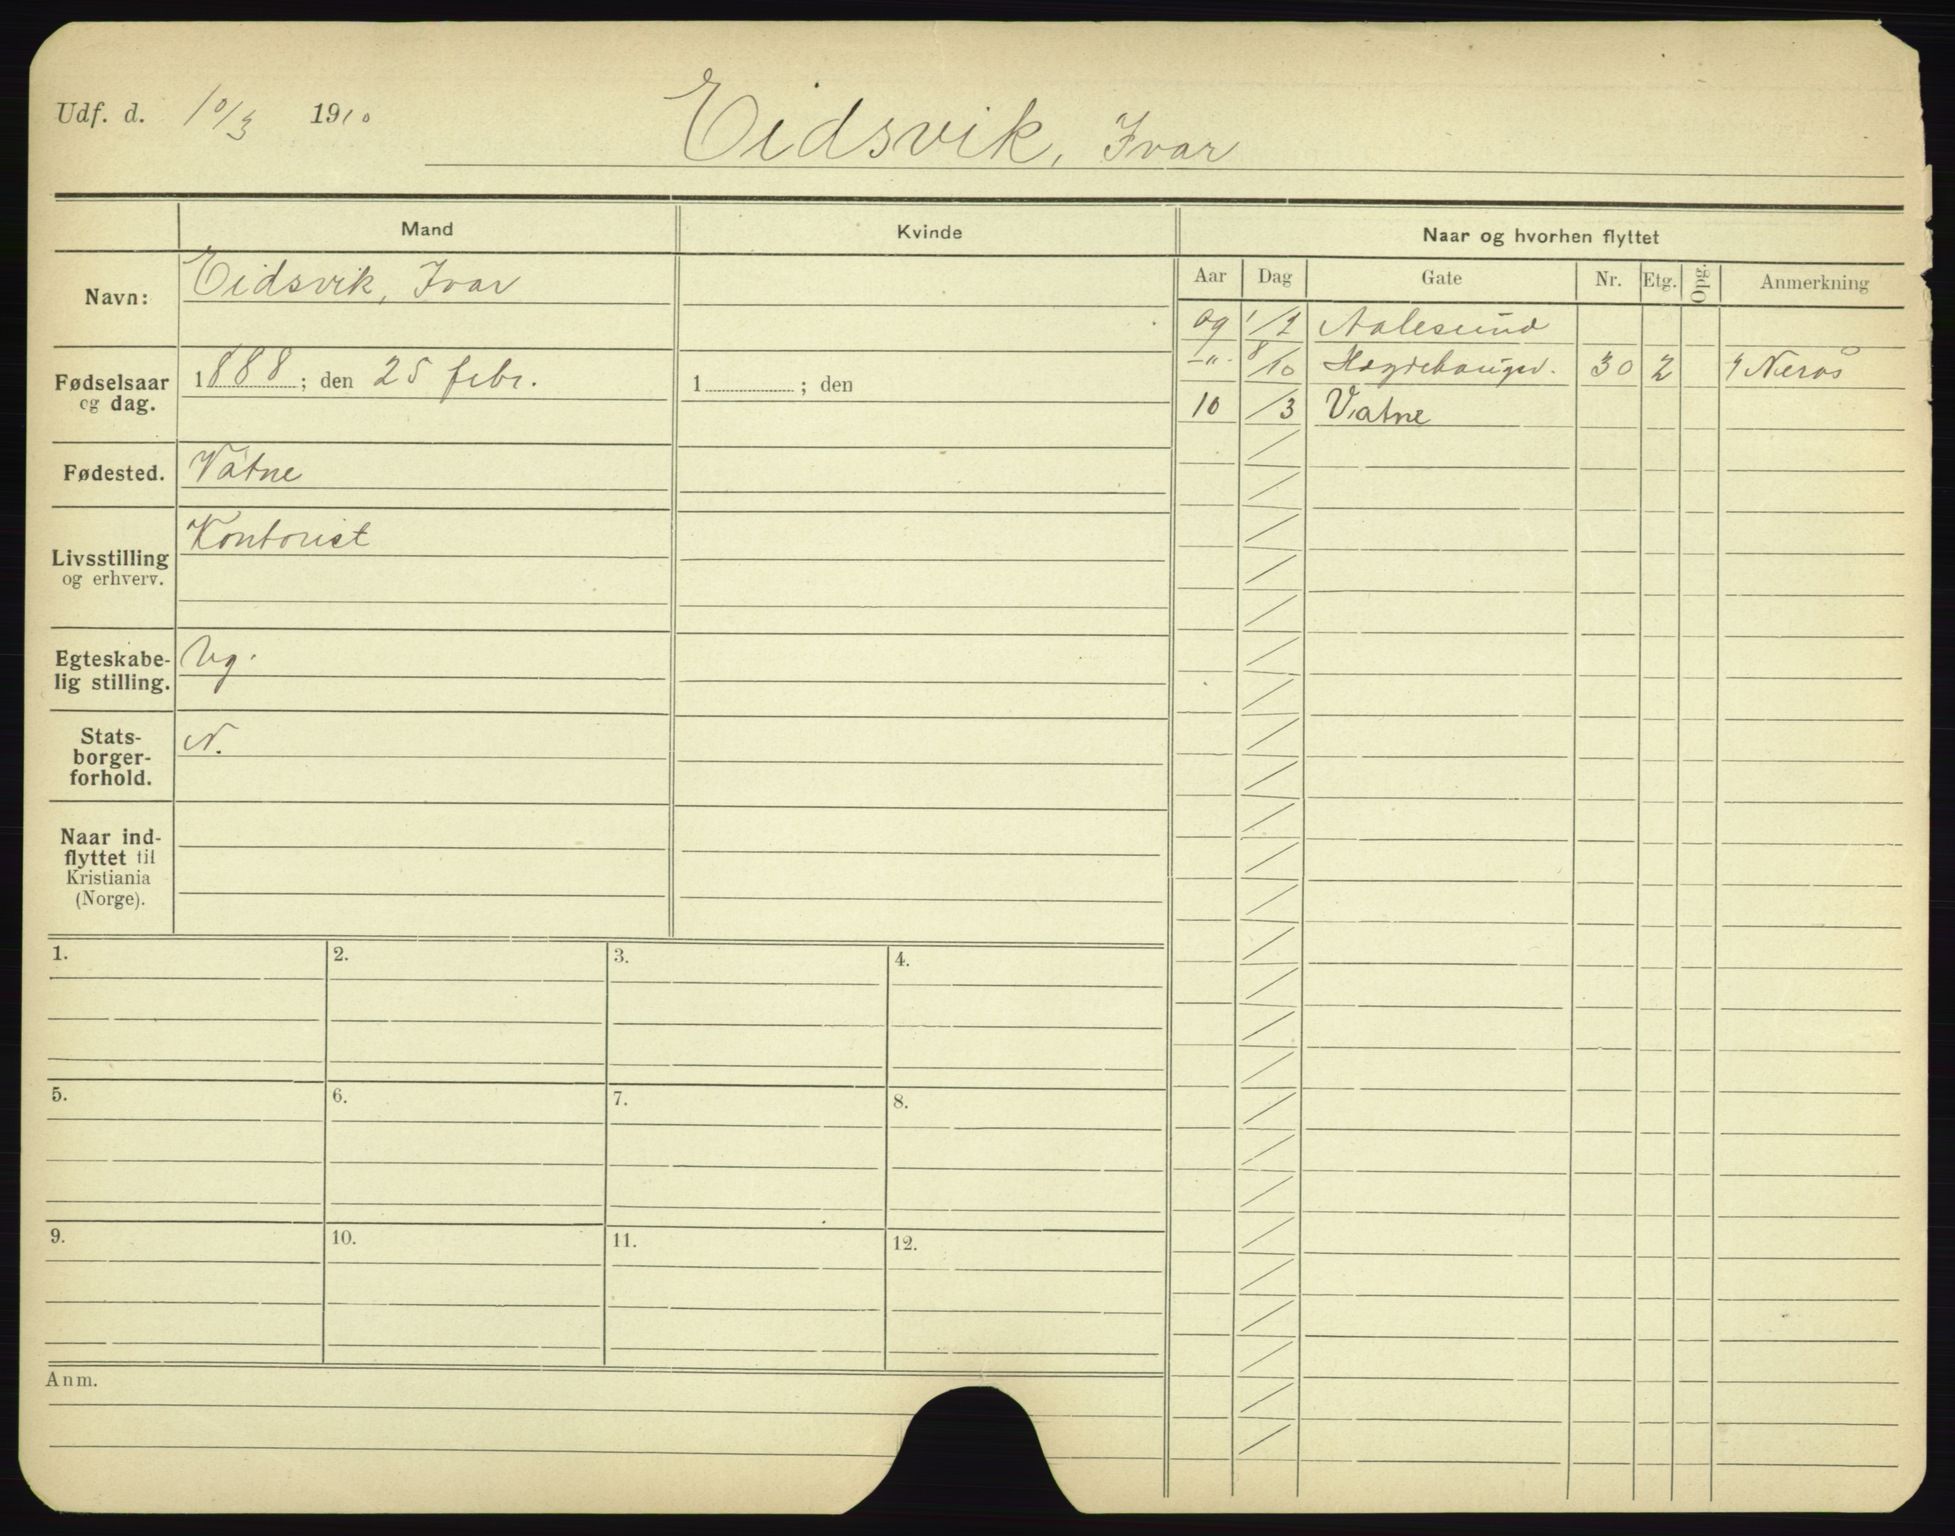 Udf. d. 10/3 1910
Eidsvik, Ivar
Mand
Kvinde
Naar og hvorhen flyttet
Navn:
Eidsvik, Ivar
Aar Dag Gate Nr. Etg. Opg. Anmerkning
09 1/2 Aalesund
-"- 8/10 30 2
10 /3 Vatne
Fødselsaar
og dag.
1888; den 25 febr.
1 ; den
Fødested.
Vatne
Livsstilling
og erhverv.
Kontorist
Egteskabe-
lig stilling.
Ug.
Stats-
borger-
forhold.
N.
Naar ind-
flyttet til
Kristiania
(Norge).
1. 2. 3. 4.
5. 6. 7. 8.
9. 10. 11. 12.
Anm.